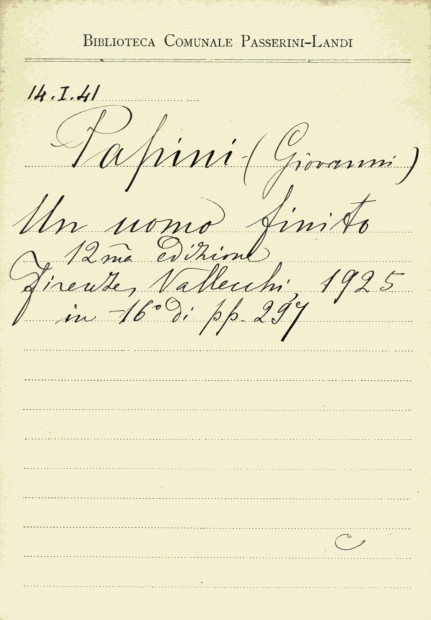 BIBLIOTECA COMUNALE PASSERINI-LANDI
14.I.41
Papini - (Giovanni)
Un uomo finito
12ma edizione
Firenze, Vallecchi, 1925
in -16° di pp. 297
C